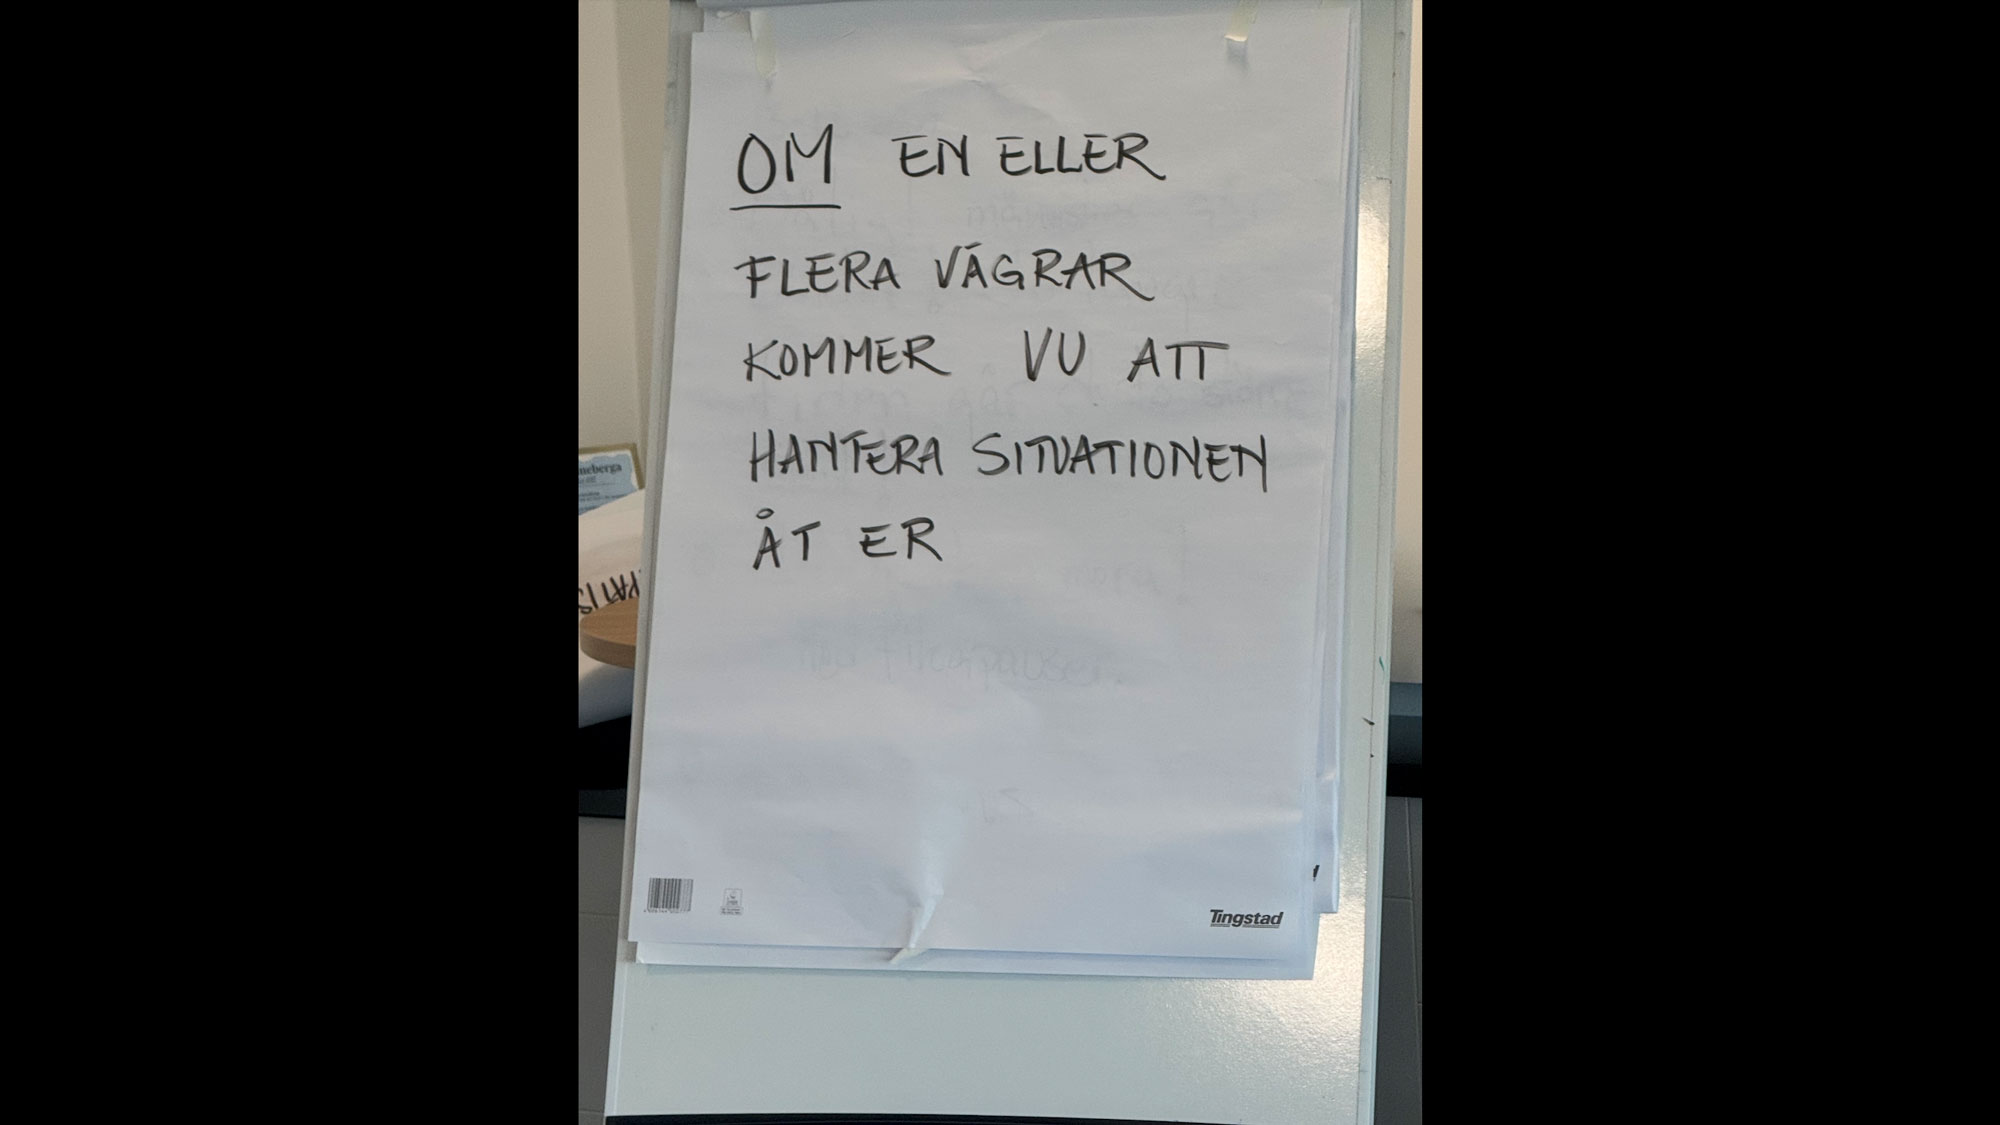 OM EN ELLER
FLERA VÄGRAR
KOMMER VU ATT
HANTERA SITUATIONEN
ÅT ER
neberga
Tingstad